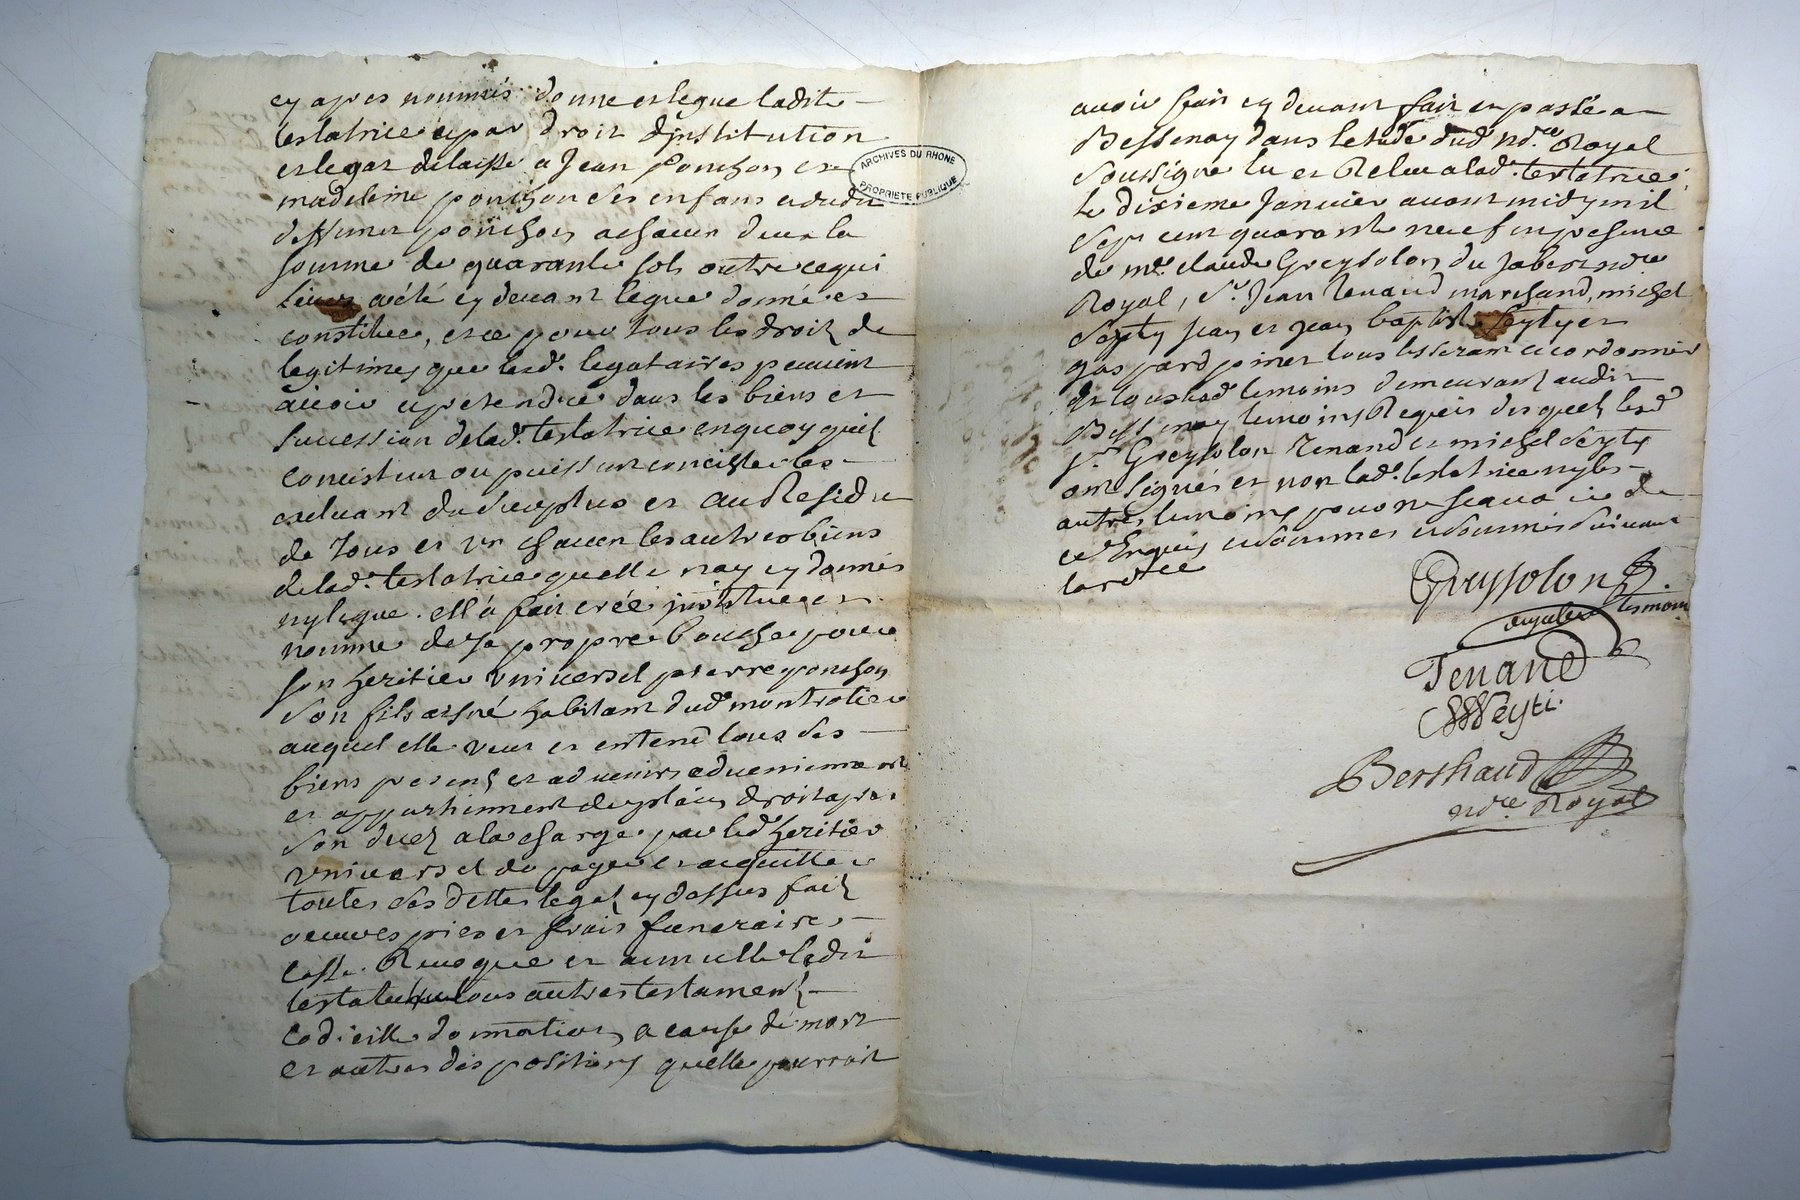 cy apres nommés donne et legue ladite
testatrice a par droit dinstitution
et legat delaisse a Jean Ponchon et
madeleine ponchon ses enfans et dudit
deffunct ponchon a chacun deux la
somme de quarante sols outre ce qui
leurs a été cy devant legué donné et
constitué, et ce pour tous les droits de
legitimes que lesd. legataires peuvent
avoir a pretendre dans les biens et
succession de lad. testatrice en quoy quils
consistent ou puissent concister les
excluant du surplus et au Residu
de Tous et un chacun les autres biens
de lad. testatrice quelle nay cy donnés
ny legue. ell'a fait créé jnstitue et
nomme de sa propre bouche pour
son heritier universel pierre ponchon
son fils aisné habitant dud montrotier
auquel elle veut et entend tous ses
biens presens et advenirs adviennent
et appartiennent de plain droit apres
son decez a la charge par led heritier
universel de payer et acquitter
toutes ses dettes legaz cy dessus faits
oeuvres pies et frais funeraires
Casse Revoque et annulle ladite
testatrice tous autres testament
Codicille donnation a cause de mort
et autres dispositions quelle pourroit
ARCHIVES DU RHONE
PROPRIETE PUBLIQUE
avoir fait cy devant fait et passé a
Bessenay dans letude dud no.re Royal
soussigne lu et Relu a lad. testatrice
le dixieme Janvier avant midy mil
sept cent quarante neuf en presence
de me. claude Greysolon du Jabert no.re
Royal, Sr. Jean Tenand marchand, michel
Seyty Jean et Jean baptiste Seyty et
gaspard poinet tous tisserant et cordonnier
demeurant audit
Bessenay temoins Requis desquels lesd
srs Greysolon Tenand et michel Seyty
ont signés et non lad. testatrice ny les
autres temoins pour ne scavoir de
ce Enquis et sommes suivant
lord.ce
Greysolon
temoin
Tenand
Seyti.
Berthaud
no.re Royal